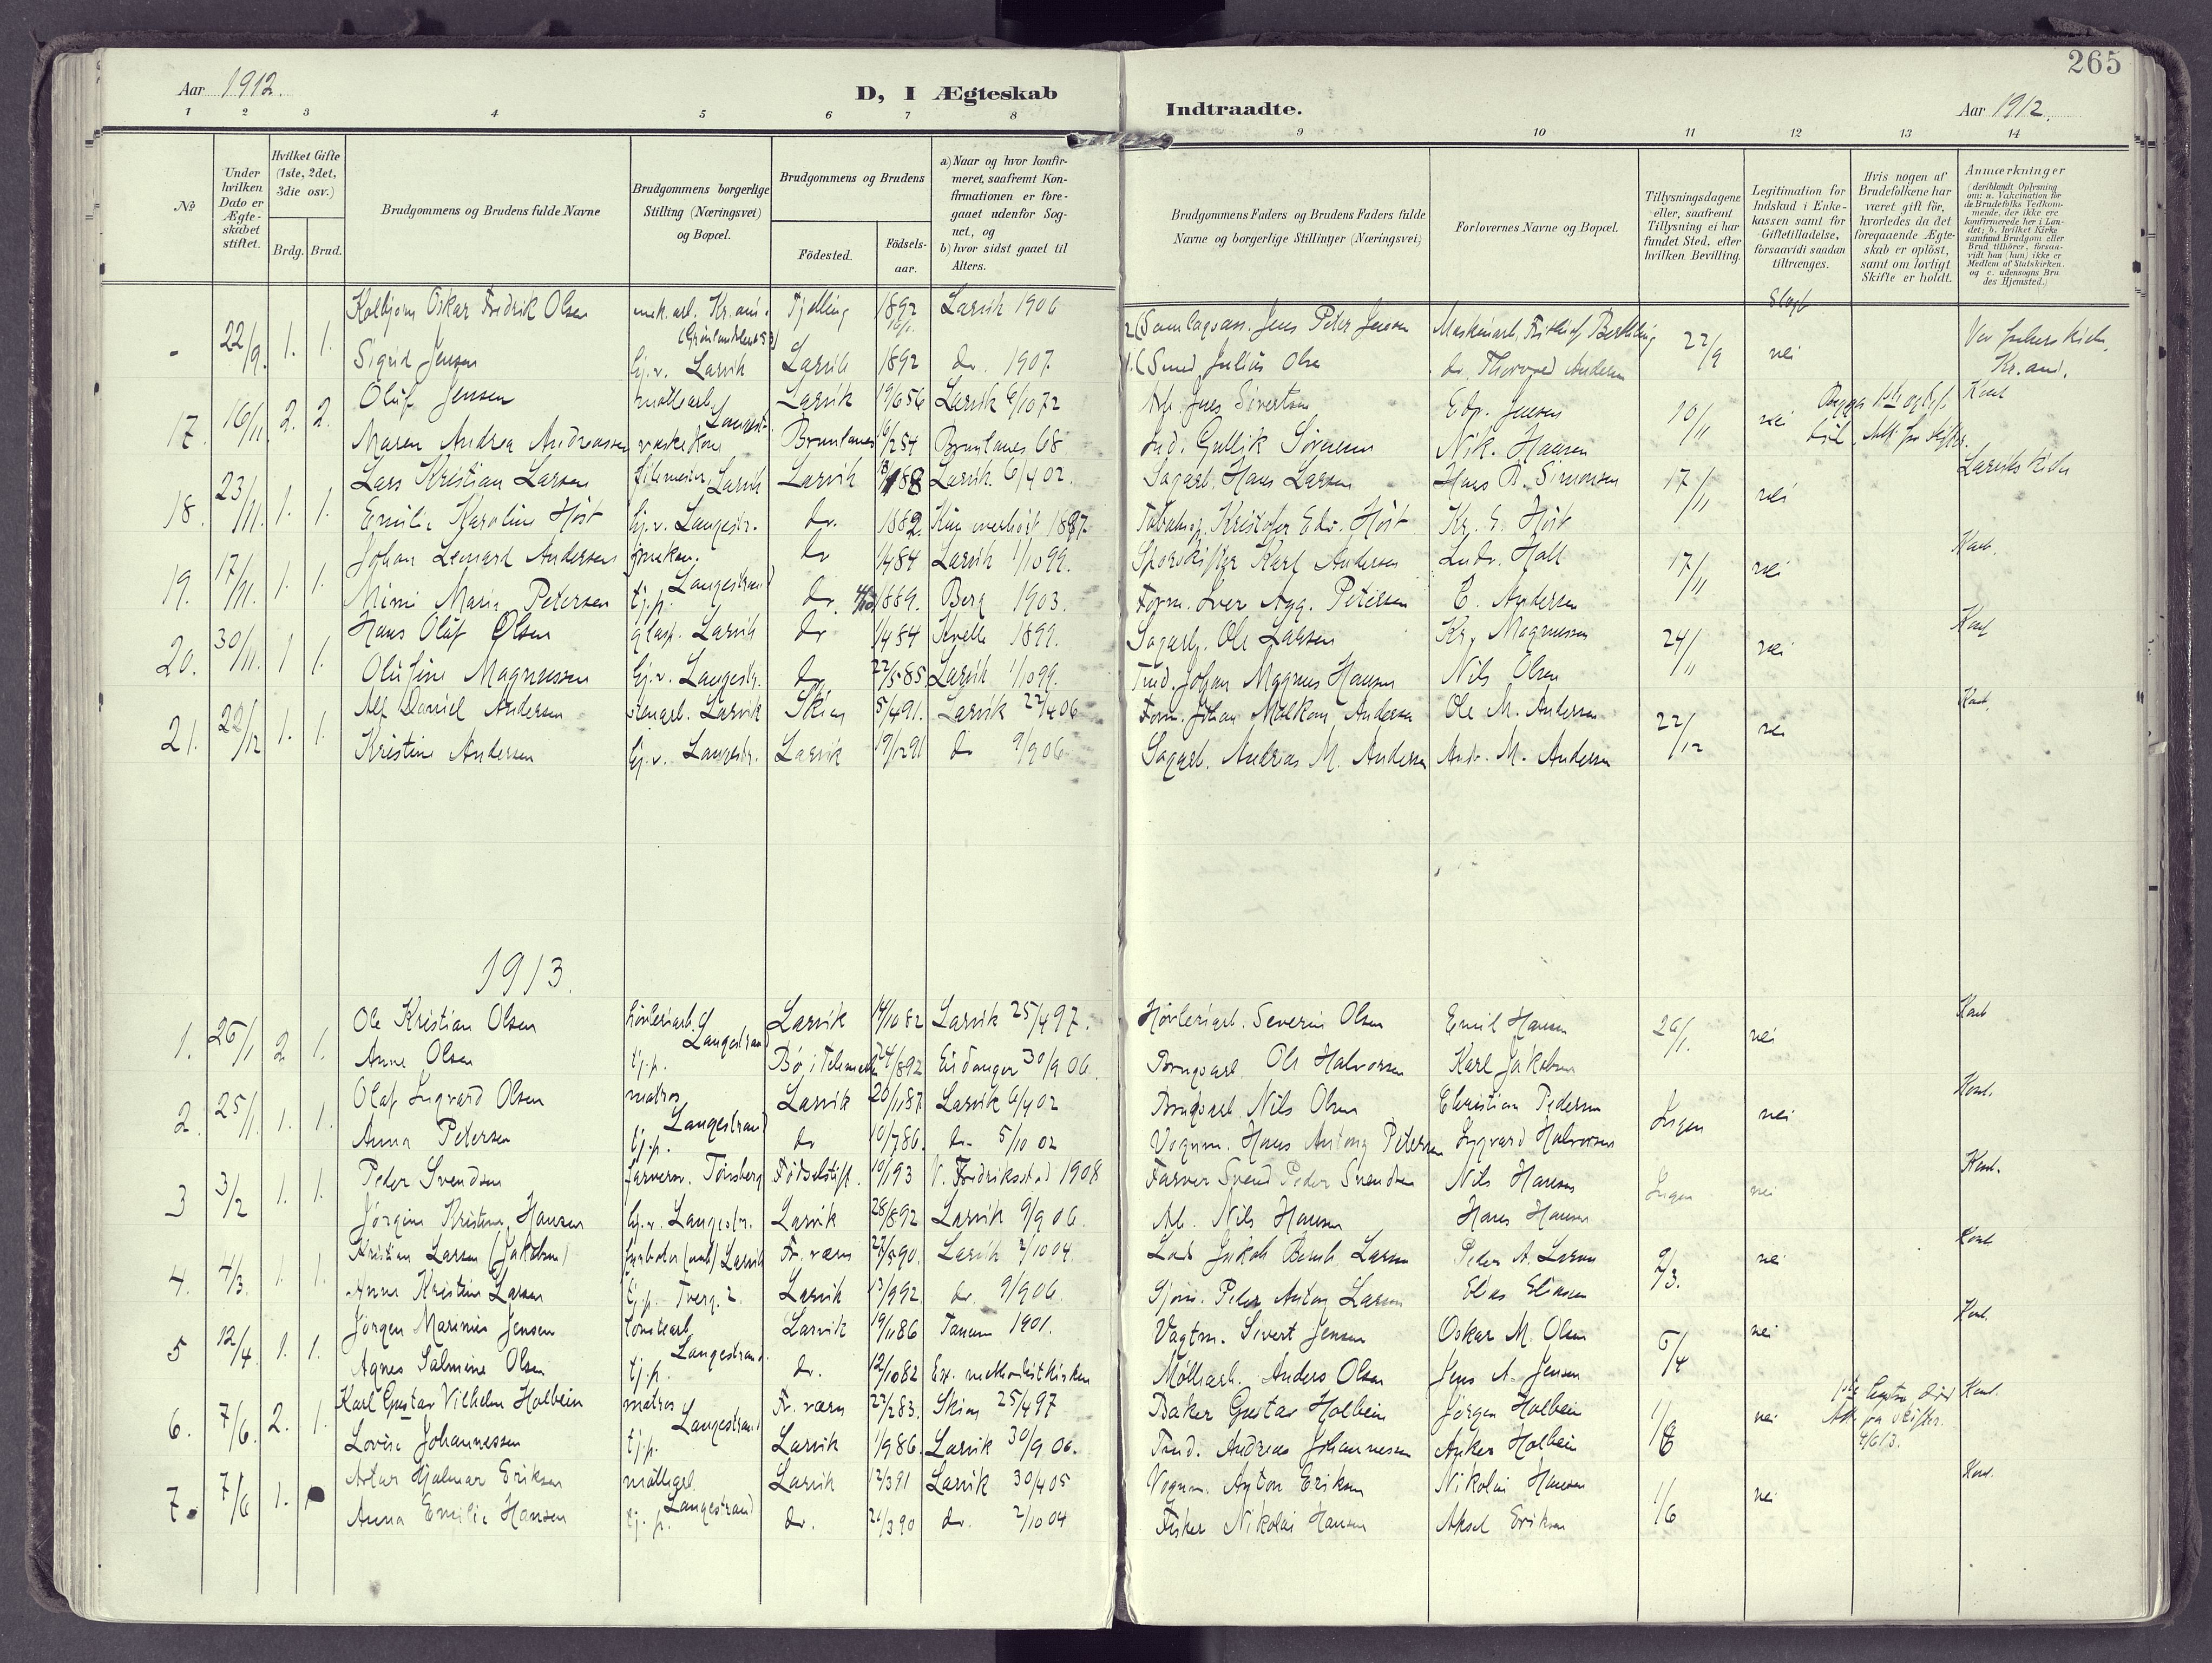 265
Aar 1912.
D, I Ægteskab
Indtraadte.
Aar 1912.
1 2 3 4 5 6 7 8 9 10 11 12 13 14
No
Under hvilken Dato er Ægte-skabet stiftet.
Hvilket Gifte (1ste, 2det, 3die osv.)
Brdg. Brud.
Brudgommens og Brudens fulde Navne
Brudgommens borgerlige Stilling (Næringsvei) og Bopæl.
Brudgommens og Brudens
Födested.
Födsels-aar.
a) Naar og hvor konfir-meret, saafremt Kon-firmationen er fore-gaaet udenfor Sog-net, og
b) hvor sidst gaaet til Alters.
Brudgommens Faders og Brudens Faders fulde Navne og borgerlige Stillinger (Næringsvei)
Forlovernes Navne og Bopæl.
Tillysningsdagene eller, saafremt Tillysning ei har fundet Sted, efter hvilken Bevilling.
Legitimation for Indskud i Enke-kassen samt for Giftetilladelse, forsaavidt saadan tiltrænges.
Hvis nogen af Brudefolkene har været gift för, hvorledes da det foregaaende Ægte-skab er oplöst, samt om lovligt Skifte er holdt.
Anmærkninger (deriblandt Oplysning om: a. Vakcination for de Brudefolks Vedkom-mende, der ikke ere konfirmerede her i Lan-det; b. hvilket Kirke-samfund Brudgom eller Brud tilhörer, forsaa-vidt han (hun) ikke er Medlem af Statskirken, og c. udensogns Bru-des Hjemsted.)
Kolbjørn Oskar Fredrik Olsen mek. arb. Kr.ania Tjølling 1892 Larvik 1906 Jens Peter Jensen
- 22/9. 1. 1. 22/9 nei
Sigrid Jensen hj. v. Larvik Larvik 1892 do. 1907. Smed Julius Olsen do. Thorvald Andersen Kr.ania.
Oluf Jensen møllearb. Larvik 19/6 56 Larvik 6/10 72 Arb. Jens Sivertsen Edv. Jensen
17. 16/11. 2. 2. Langestr. 10/11 nei
Maren Andrea Andreassen vaskekone Brunlanes 54 Brunlanes 68 Ind. Gullik Sørensen Nik. Hansen
Lars Kristian Larsen Larvik Larvik 88 Larvik 6/4 02. Sagarb. Hans Larsen Hans A. Simonsen Larviks kirke
18. 23/11. 1. 1. 17/11 nei
Emilie Karoline Høst hj. v. Langestr. do. 1882 1887. Kristofer Edv. Høst Kr. E. Høst
Johan Lenard Andersen do 84 Larvik 1/10 99. Karl Andersen Ludv. Holt
19. 17/11. 1. 1. Langestrand 17/11 nei
Mimi Marie Petersen tj. p. do. 1889. Berg 1903. Form. Iver Agg. Petersen C. Andersen
Hans Oluf Olsen glasp. Larvik do 84 Kvelle 1899. Sagarb. Ole Larsen Kr. Magnussen
20. 30/11. 1 1. 24/11 nei
Olufine Magnussen hj. v. Langestr. do 22/5 85. Larvik 1/10 99. Tind. Johan Magnus Hansen Nils Olsen
Alf Daniel Andersen stenarb. Larvik Skien 5/4 91. Larvik 22/4 06 Form. Johan Malkom Andersen Ole M. Andersen
21. 22/12 1. 1. 22/12 nei
Kristine Andersen hj. v. Langestr. Larvik 19/12 91 do 9/9 06 Sagarb. Andreas M. Andersen Andr. M. Andersen
1913.
Ole Kristian Olsen høvleriarb. Larvik 14/10 82 Larvik 25/4 97. Høvleriarb. Severin Olsen Emil Hansen
1. 26/1 2 1. Langestrand 26/1. nei
Anne Olsen tj. p. Bø i Telemarken 24/8 92 Eidanger 30/9 06. Ole Halvorsen Karl Jakobsen
Olaf Ingvard Olsen matros Larvik 20/11 87. Larvik 6/4 02 Nils Olsen Christian Pedersen
2. 25/1. 1. 1. Langestrand Ingen nei
Anna Petersen tj. p. do 10/7 86. do. 5/10 02 Vognm. Hans Antony Petersen Ingvard Halvorsen
Peder Svendsen farversv. Tønsberg Fødselstift. 10/1 93 V. Fredriksstad 1908 Farver Svend Peder Svendsen Nils Hansen
3 3/2 1. 1. Ingen nei
Jørgine Kristine Hansen hj. v. Langestr. Larvik 28/8 92 Larvik 9/9 06. Arb. Nils Hansen Hans Hansen
Kristian Larsen (Jakobsen) Larvik Fr. værn 27/5 90. Larvik 2/10 04. Lods Jakob Bernh. Larsen Peder A. Larsen
4. 4/3. 1. 1. 2/3. nei
Anne Kristine Larsen tj. p. Tverg. 2 Larvik 13/9 92 do. 9/9 06. Sjøm. Peder Anton Larsen Elias Eliasen
Jørgen Marinius Jensen tomtearb. Larvik 19/11 86 Tanum 1901. Vagtm. Sivert Jensen Oskar M. Olsen
5 12/4. 1. 1. Langestrand. 6/4 nei
Agnes Salmine Olsen tj. p. do. 12/10 82 Ex. methodistkirken Møllearb. Anders Olsen Jens A. Jensen
Karl Gustav Vilhelm Holbein matros Fr. værn 22/2 83. Skien 25/4 97 Baker Gustav Holbein Jørgen Holbein
6. 7/6. 2. 1. Langestrand 1/6 nei 4/6 13.
Lovise Johannessen tj. p. Larvik 1/9 86. Larvik 30/9 06. Tand. Andreas Johannessen Anker Holbein
Artur Hjalmar Eriksen møllearb. Larvik 12/3 91 Larvik 30/4 05 Vognm. Anton Eriksen Nikolai Hansen
7. 7/6 1. Langestrand 1/6 nei
Anna Emilie Hansen tj. p. do. 21/3 90 do. 2/10 04 Fisker Nikolai Hansen Aksel Eriksen